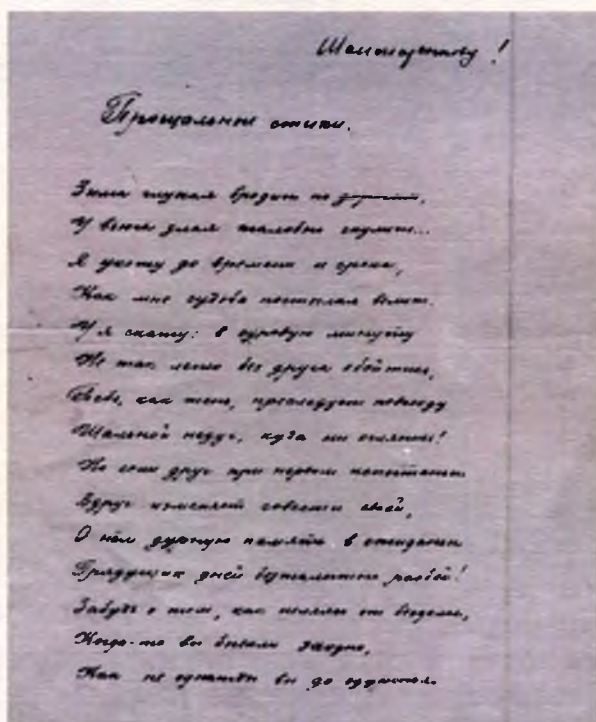 !
Прощальные стихи.
Зима глухая бродит по
И вьюга злая жалобно скулит...
Я ухожу до времени и срока,
Как мне судьба постылая велит.
И я скажу: в суровую минуту
Не так легко без друга обойтись,
Тебя, как тень, преследует повсюду
Шальной недуг, куда ни оглянись!
Но если друг при первом испытаньи
Вдруг изменяет совести своей,
О нём дурную память в ожиданьи
Грядущих дней безжалостно развей!
Забудь о том, как
Когда-то вы бывали заодно,
Как не однажды вы до